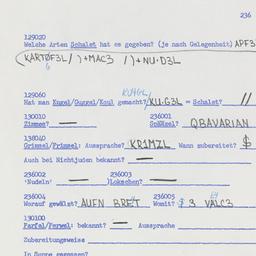 236
129020
Welche Arten Schalet hat es gegeben? (je nach Gelegenheit) APF3
(KARTOF3L/ )+MAC3 /)+NU·D3L
6
KUGL
129060
Hat man Kugel/Gunnel/Koul gemacht? KU.G3L = Schalet? //
130010 236001
Zimmes? — Schüsel? QBAVARIAN
138040
Grimsel/Primsel: Aussprache? KR1MZL Wann zubereitet? $
Auch bei Nichtjuden bekannt? —
236002 236003
'Nudeln' — Lokschen? —
236004 236005
Worauf gewälgt? AUFN BRET Womit? $ 3 VALC3
130100
Farfel/Fermel: bekannt? — Aussprache
Zubereitungsweise
In Suppe gegessen?